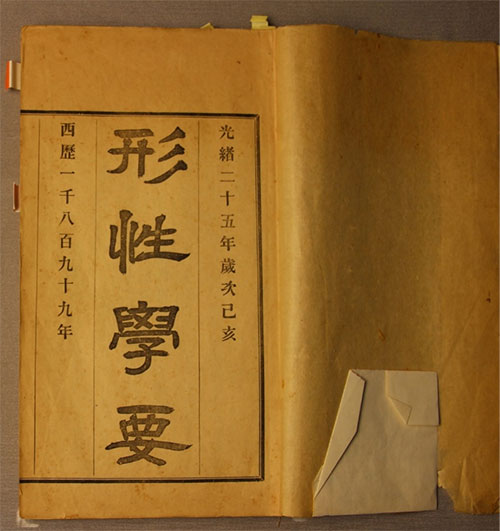 光緒二十五年歲次己亥
形性學要
西歷一千八百九十九年